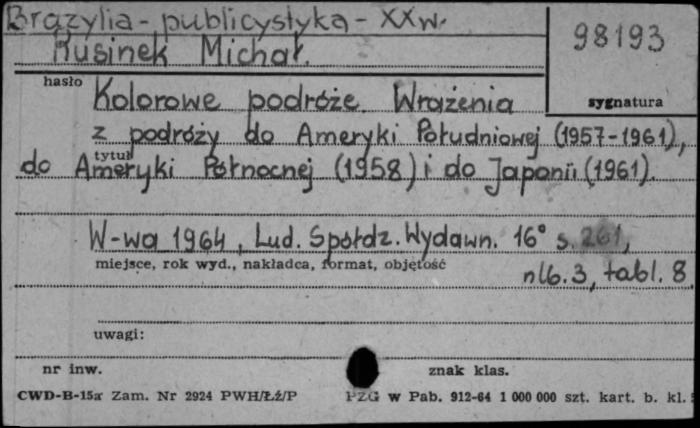 Brazylia - publicystyka - XX w.
98193
Rusinek Michał.
hasło
sygnatura
Kolorowe podróże. Wrażenia
z podróży do Ameryki Południowej (1957-1961),
tytuł
do Ameryki Północnej (1958) i do Japonii (1961).
W-wa 1964, Lud. Spółdz. Wydawn. 16° s. 261,
miejsce, rok wyd., nakładca, format, objętość
nlb. 3, tabl. 8.
uwagi:
nr inw.
znak klas.
CWD-B-15a Zam. Nr 2924 PWH/Łź/P
PZG w Pab. 912-64 1 000 000 szt. kart. b. kl.